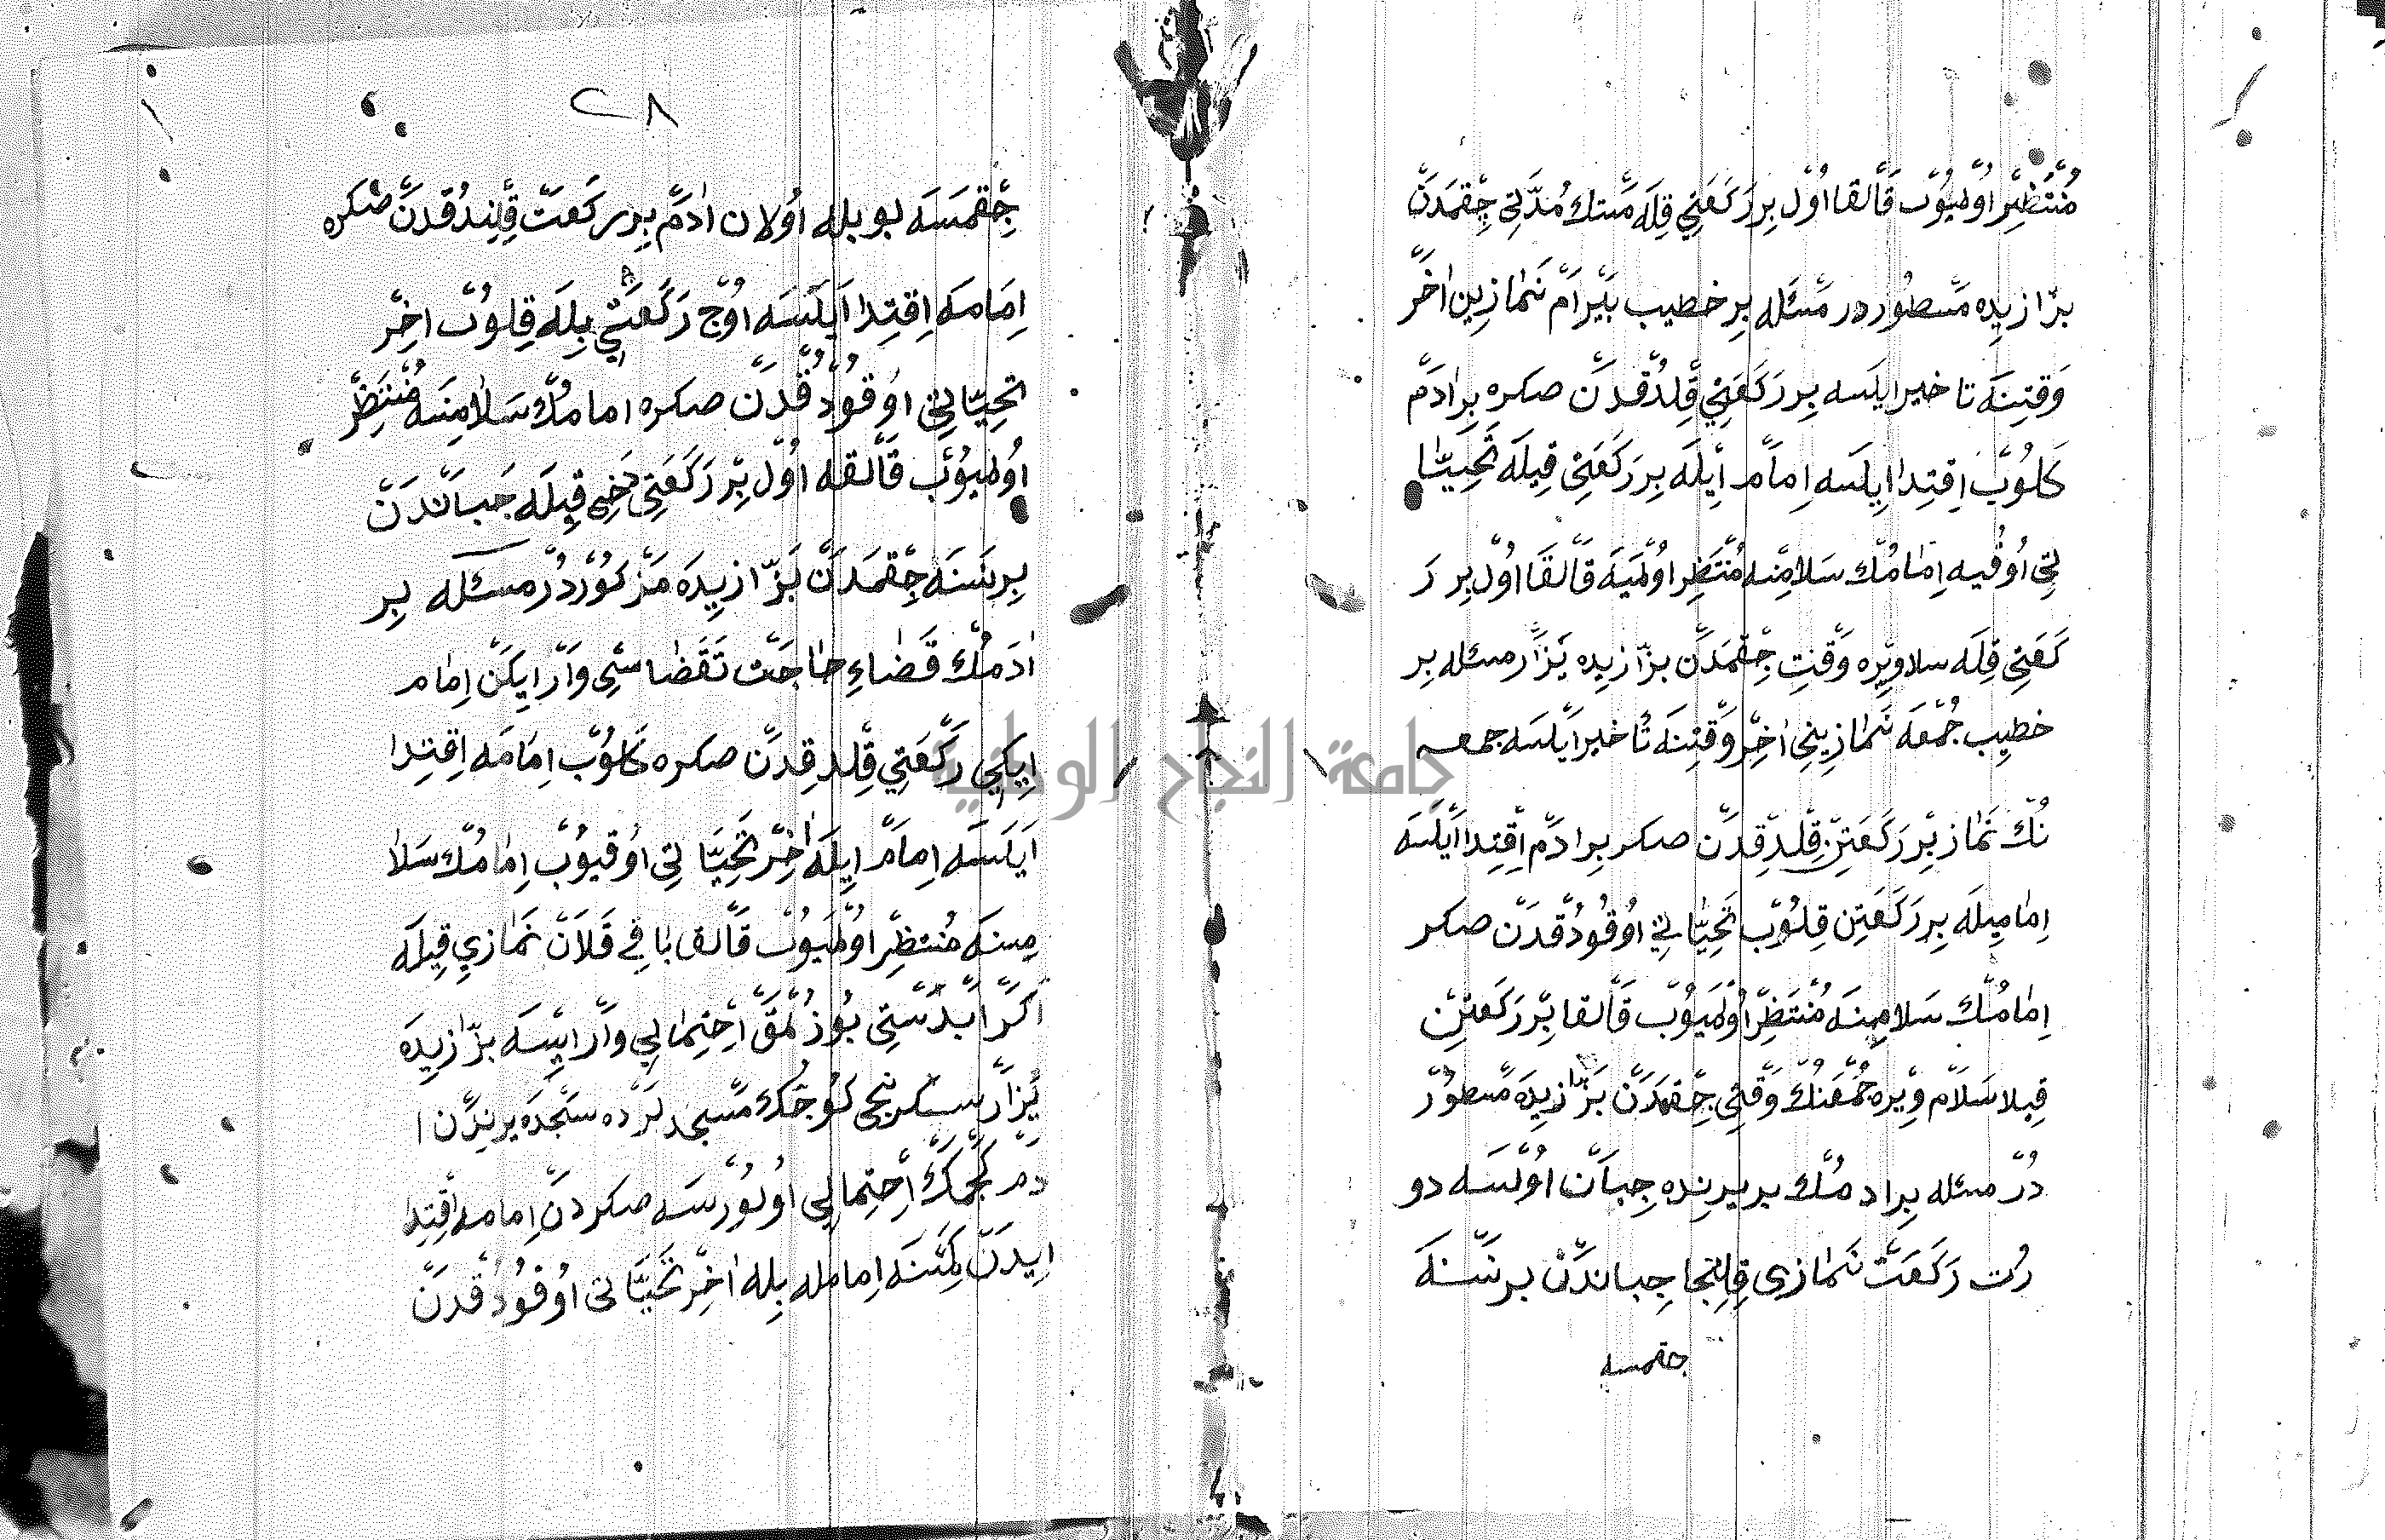 مُنْتَظِرْ اوُلْمِيُوبْ قَالقا اوُّلْ بِرْ رَكْعَتِي قِلَه مَسْتك مُدَّتِي جِقْمَدَنْ
بزّازيده مَسْطُوردر مَسْئَله بِر خطيب بَيْرَامْ نَمازِين اٰخَرْ
وَقتِنَه تاخير ايلَسه بِر رَكعَتِي قِلِدُقْدَن صكره بِرْ اٰدَمْ
كَلُوبْ اِقتِدا ايلَسه اِمامْ ايلَه بِر رَكعَتِي قِيلَه تَحِيَّا
تِي اوُقُيه اِمامُكْ سَلامِنه مُنْتَظِر اوُلْمَيَه قَالقَا اوُّل بِر رَ
كَعَتِي قِلَه سلام وِيره وَقْتِ جِقْمَدَن بزّازيده يَزَار مسئله بِر
خطِيب جُمْعَه نَمازِينِي اٰخِرْ وَقتِنَه تأخير ايلَسَه جمعه
نُكْ نَماز بِرْ رَكَعَتِن قِلِدقِدَنْ صكر بِر ادَمْ اِقْتِدا ايلَسَه
اِمامِيلَه بِر رَكَعَتِن قِلوُبْ تَحِيَّاتِي اوُقُودُقدَنْ صكر
اِمامُكْ سَلامِنَه مُنْتَظِرْ اوُلْمَيُوبْ قَالقا بِرْ رَكعَتِن
قِيلا سَلَامْ وِيره جُمْعَنُكْ وَقْتِي جِقمَدَنْ بَزّازيدَه مَسطوُرْ
دُرْ مسئله بِر ادمُكْ بر يرنده جِبَانْ اوُلَسَه دو
رُت رَكَعَتْ نَمازِي قِلِنْجا جِباندَنْ بر نَسْنَه
جقمسه
٢٨
جِقْمَسَه بويله اوُلان اٰدَمْ بِر رَكْعَتْ قِلِندُقدَنْ صكره
اِمَامَه اِقتِدا اَيلَسَه اوُجْ رَكَعَتِي بِلَه قِلوُبْ اخِرْ
تَحِيَّاتِي اوُقوُدُقْدَنْ صكره امامُكْ سَلامِنَه مُنْتَظِرْ
اوُلميوُبْ قَالقه اوُّلْ بِرْ رَكَعَتِي دَخِي قِيلَه جَباندَنْ
بِر نَسنَه جِقمَدَنْ بَزّازيدَه مَزكوُردُرْ مسئله بِر
اٰدَمُكْ قَضاءِ حاجَتْ تَقَضاسِي وَارْ ايكَنْ اِمام
اِيكِي رَكَعَتِي قِلدقِدَنْ صكره كَلوُبْ اِمَامَه اِقتِدا
اَيلَسَه اِمامْ ايِلَه اٰخِرْ تَحِيَّاتِي اوُقيوُبْ اِمامُكْ سَلا
مِنَه مُنتَظِرْ اوُلْمَيوُبْ قَالقا باقِي قَلاَنْ نَمازِي قِيلَه
اكَرْ ابدَسْتِي بوُزُلْمَقْ اِحْتِمالِي وَارْ ايسَه بزّازيدَه
يَزارْ كوُجُك مَسجدلَرْده سَجْدَه يرندَن ا
دَمْ كَجْمَكْ اِحتِمالِي اوُلوُرْسَه صكردنْ اِمامه اِقتِدا
ايدَنْ كِمْسَنَه امامله بِله اٰخِرْ تَحِيَّاتِي اوُقوُدُقدَنْ
جامعة النجاح الوطنية